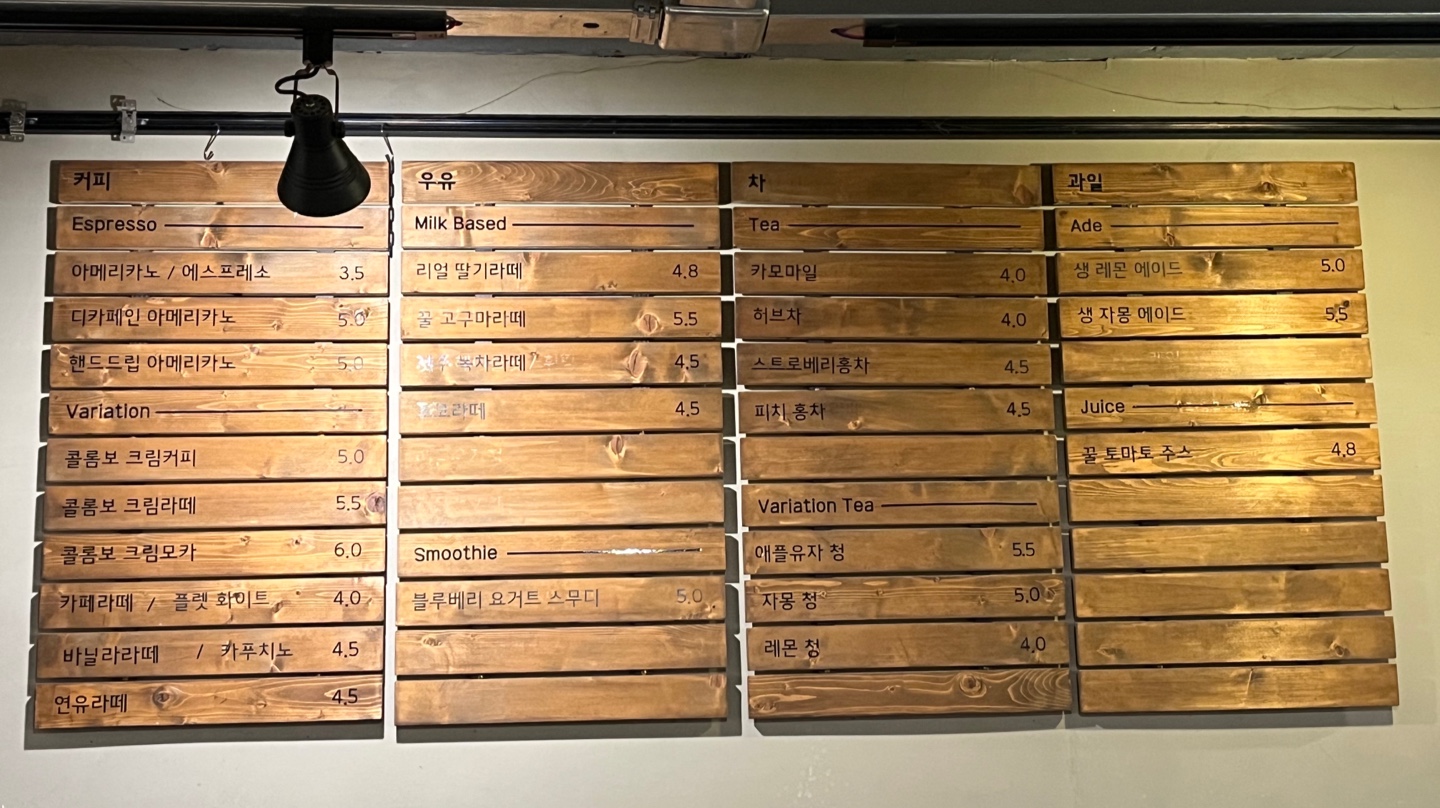 커피
Espresso
아메리카노 / 에스프레소 3.5
디카페인 아메리카노 5.0
핸드드립 아메리카노 5.0
Variation
콜롬보 크림커피 5.0
콜롬보 크림라떼 5.5
콜롬보 크림모카 6.0
카페라떼 / 플렛 화이트 4.0
바닐라라떼 / 카푸치노 4.5
연유라떼 4.5
우유
Milk Based
리얼 딸기라떼 4.8
꿀 고구마라떼 5.5
녹차라떼 / 4.5
4.5
Smoothie
블루베리 요거트 스무디 5.0
차
Tea
카모마일 4.0
허브차 4.0
스트로베리홍차 4.5
피치 홍차 4.5
Variation Tea
애플유자 청 5.5
자몽 청 5.0
레몬 청 4.0
과일
Ade
생 레몬 에이드 5.0
생 자몽 에이드 5.5
Juice
꿀 토마토 주스 4.8